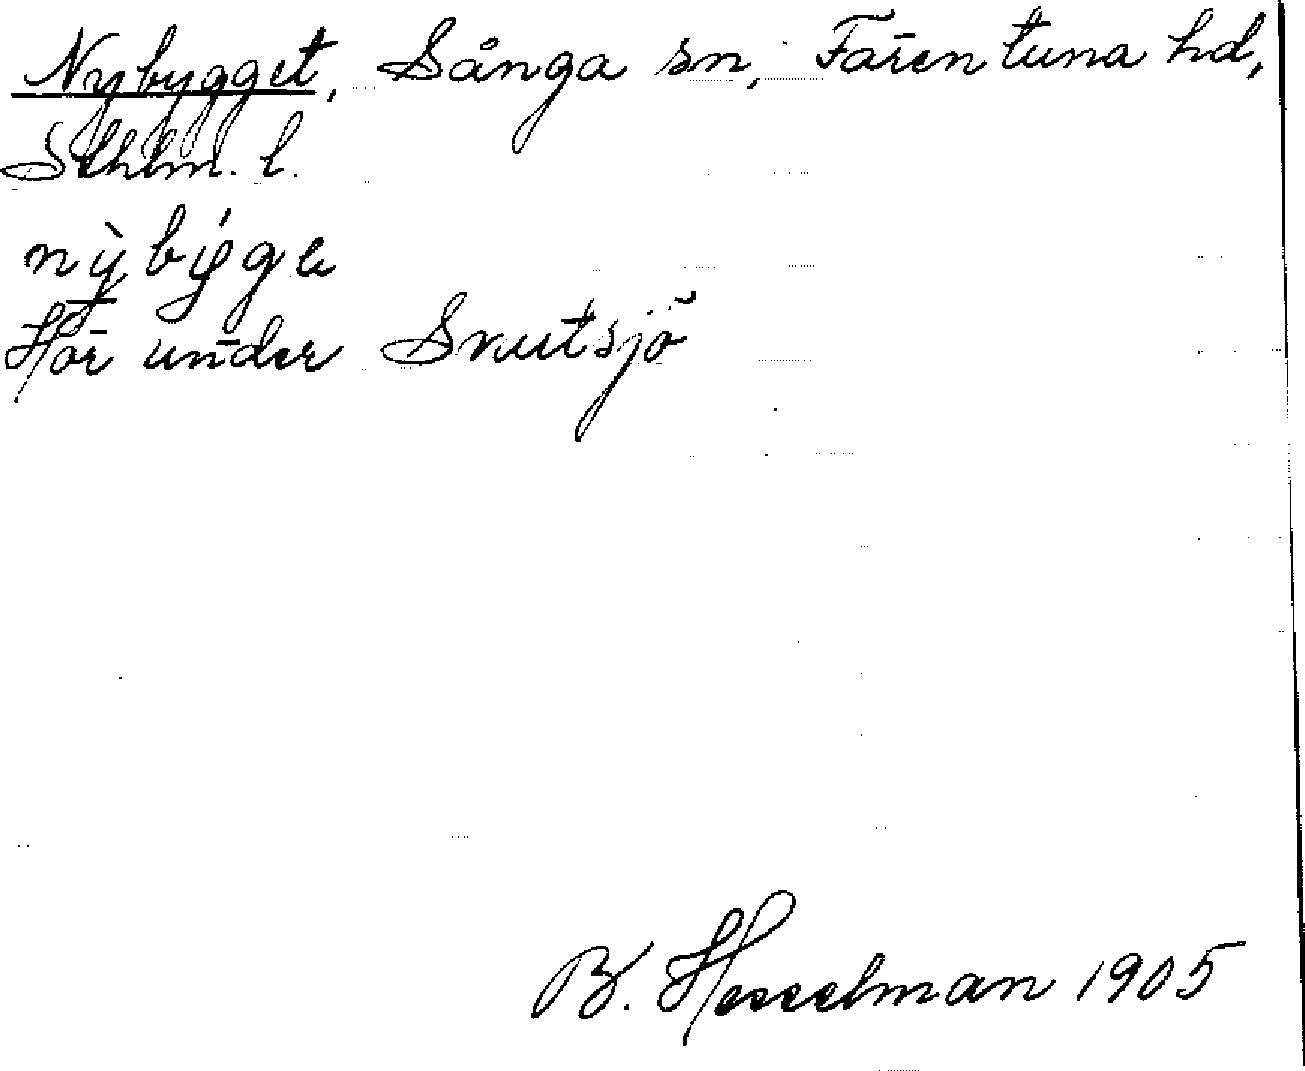 Nybygget, Sånga sn, Färentuna hd,
Sthlm. l.
nỳbýge
Hör under Snutsjö
B. Hesselman 1905